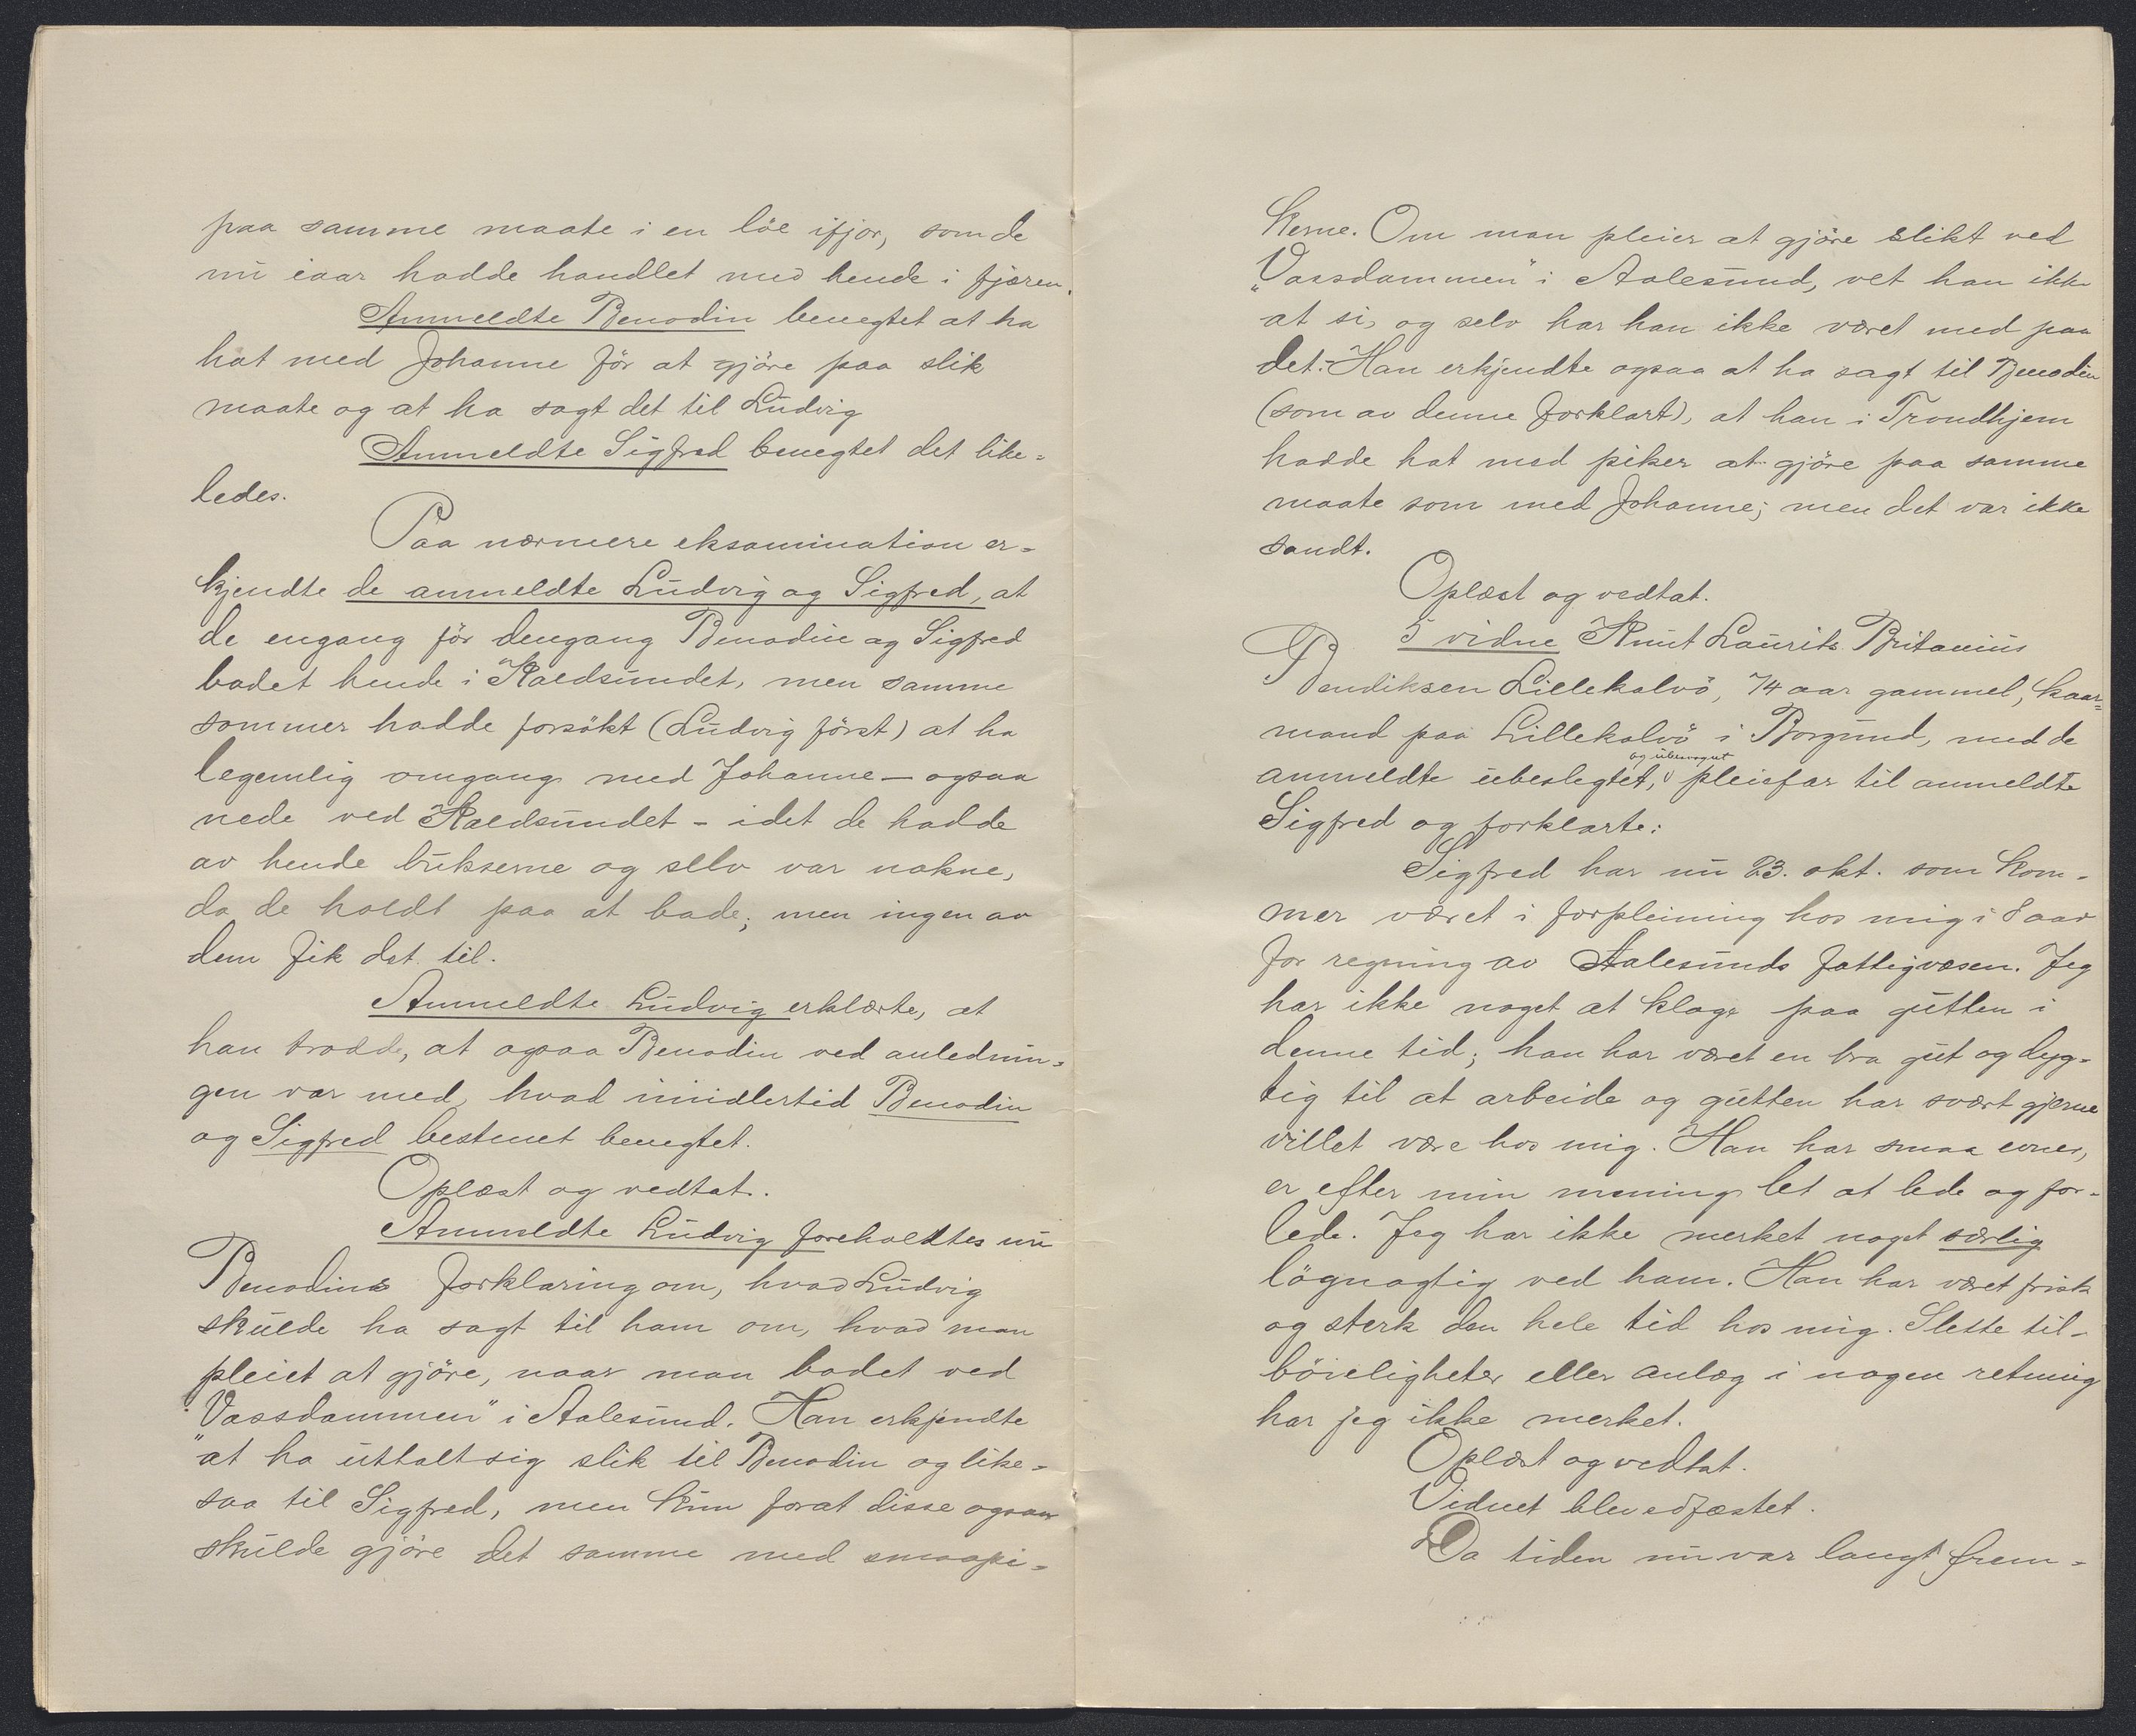 paa samme maate i en löe ifjor, som de
nu iaar hadde handlet med hende i fjæren.
Anmeldte Benodin benegtet at ha
hat med Johanne før at gjöre paa slik
maate og at ha sagt det til Ludvig
Anmeldte Sigfred benegtet det like=
ledes.
Paa nærmere eksamination er=
kjendte de anmeldte Ludvig og Sigfred, at
de engang för dengang Benodin og Sigfred
badet hende i Kaldsundet, men samme
sommer hadde forsökt (Ludvig först) at ha
legemlig omgang med Johanne — ogsaa
nede ved Kaldsundet – idet de hadde
av hende bukserne og selv var nakne,
da de holdt paa at bade; men ingen av
dem fik det til.
Anmeldte Ludvig erklærte, at
han trodde, at ogsaa Benodin ved anlednin=
gen var med, hvad imidlertid Benodin
og Sigfred bestemt benegtet.
Oplæst og vedtat.
Anmeldte Ludvig foreholdtes nu
Benodins forklaring om, hvad Ludvig
skulde ha sagt til ham om, hvad man
pleiet at gjöre, naar man badet ved
"Vassdammen" i Aalesund. Han erkjendte
at ha uttalt sig slik til Benodin og like=
saa til Sigfred, men kun forat disse ogsaa
skulde gjöre det samme med smaapi=
kerne. Om man pleier at gjöre slikt ved
"Vassdammen" i Aalesund, vet han ikke
at si, og selv har han ikke været med paa
det. Han erkjendte ogsaa at ha sagt til Benodin
(som av denne forklart), at han i Trondhjem
hadde hat med piker at gjöre paa samme
maate som med Johanne; men det var ikke
sandt.
Oplæst og vedtat.
5 vidne Knut Laurits Britanius
Bendiksen Lillekalvö, 74 aar gammel, kaar=
mand paa Lillekalvö i Borgund, med de
og ubesvogret
anmeldte ubeslegtet, v pleiefar til anmeldte
Sigfred og forklarte:
Sigfred har nu 23. okt. som kom=
mer været i forpleining hos mig i 8 aar
for regning av Aalesunds fattigvæsen. Jeg
har ikke noget at klage paa gutten i
denne tid; han har været en bra gut og dyg=
tig til at arbeide og gutten har svært gjerne
villet være hos mig. Han har smaa evner,
er efter min mening let at lede og for=
lede. Jeg har ikke merket noget særlig
lögnagtig ved ham. Han har været frisk
og sterk den hele tid hos mig. Slette til=
böieligheter eller anlæg i nogen retning
har jeg ikke merket.
Oplæst og vedtat.
Vidnet blev edfæstet.
Da tiden nu var langt frem=